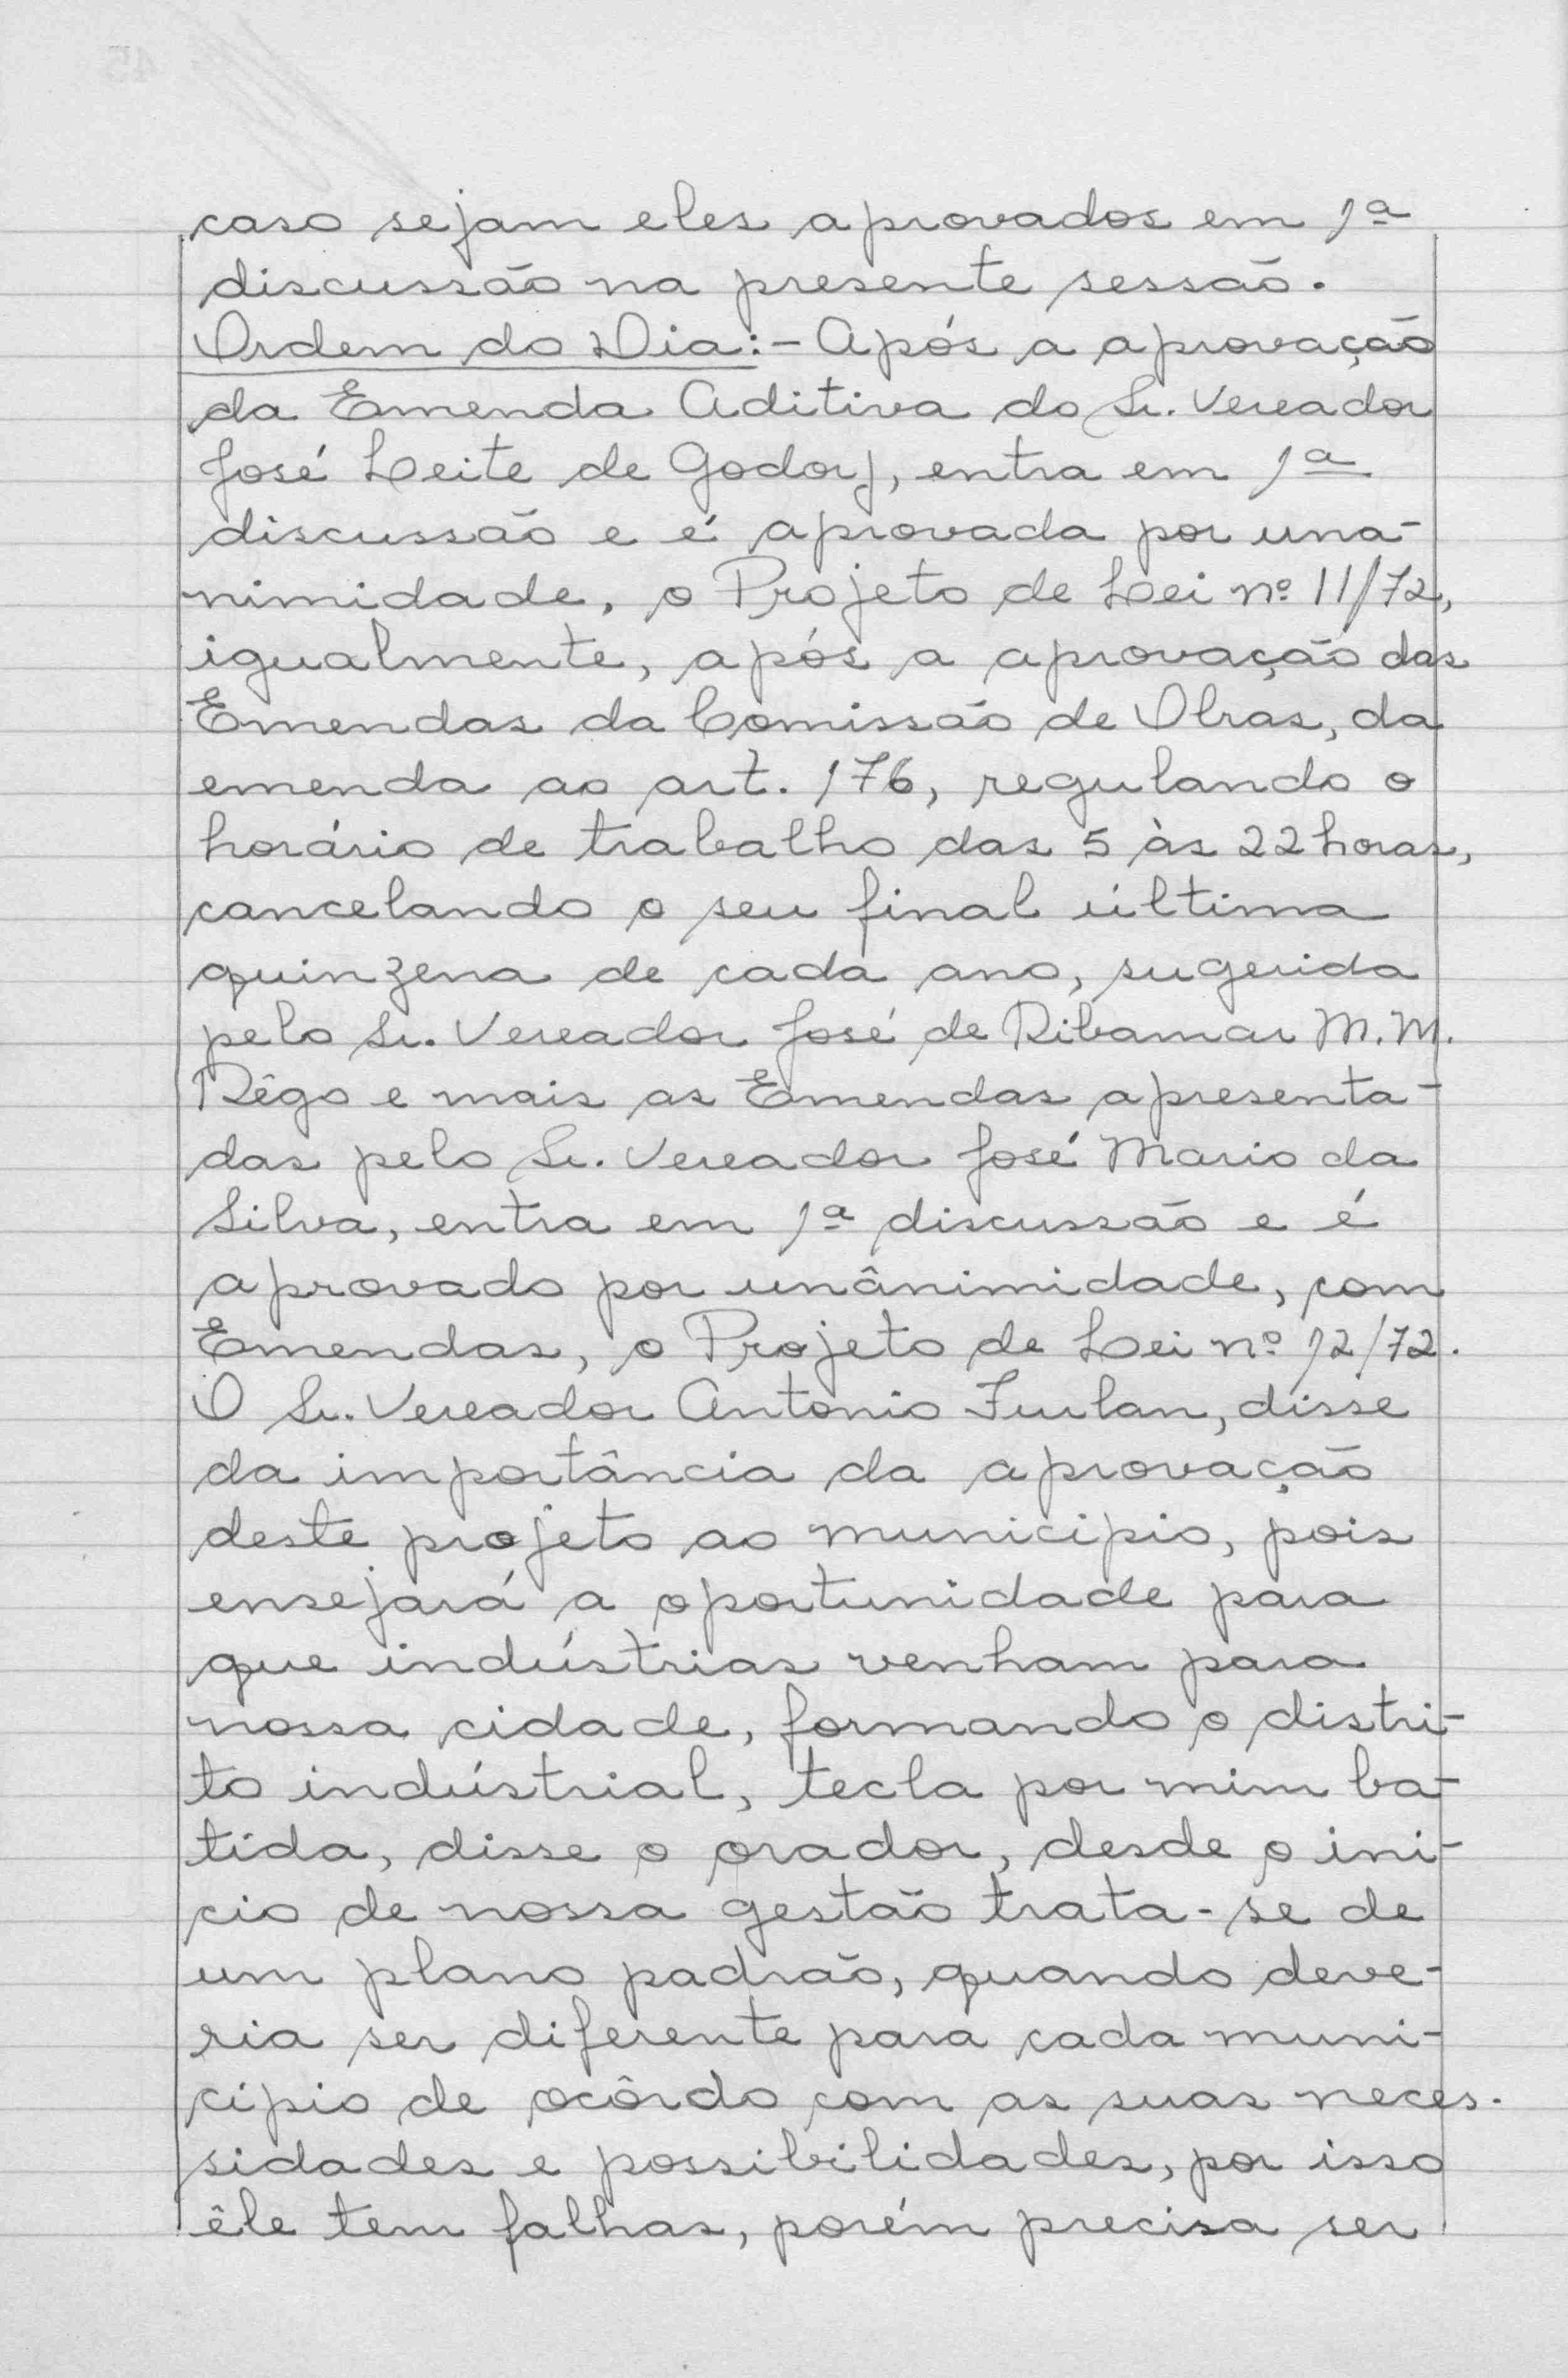 caso sejam eles aprovados em 1ª
discussão na presente sessão.
Ordem do Dia:- Após a aprovação
da Emenda Aditiva do Sr. Vereador
José Leite de Godoy, entra em 1ª
discussão e é aprovada por una-
nimidade, o Projeto de Lei nº 11/72,
igualmente, após a aprovação das
Emendas da Comissão de Obras, da
emenda ao art. 176, regulando o
horário de trabalho das 5 às 22 horas,
cancelando o seu final última
quinzena de cada ano, sugerida
pelo Sr. Vereador José de Ribamar M. M.
Rêgo e mais as Emendas apresenta-
das pelo Sr. Vereador José Mario da
Silva, entra em 1ª discussão e é
aprovado por unânimidade, com
Emendas, o Projeto de Lei nº 12/72.
O Sr. Vereador Antonio Furlan, disse
da importância da aprovação
deste projeto ao municipio, pois
ensejará a oportunidade para
que indústrias venham para
nossa cidade, formando o distri-
to indústrial, tecla por mim ba-
tida, disse o orador, desde o ini-
cio de nossa gestão trata-se de
um plano padrão, quando deve-
ria ser diferente para cada muni-
cipio de acôrdo com as suas neces-
sidades e possibilidades, por isso
êle tem falhas, porém precisa ser